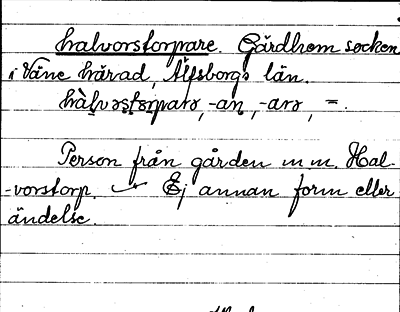 halvorstorpare. Gärdhem socken
i Väne härad, Älfsborgs län.
hàlvɔstɔrparə, -an, -arə, =.
Person från gården m m. Hal-
-vorstorp. Ej annan form eller
ändelse.